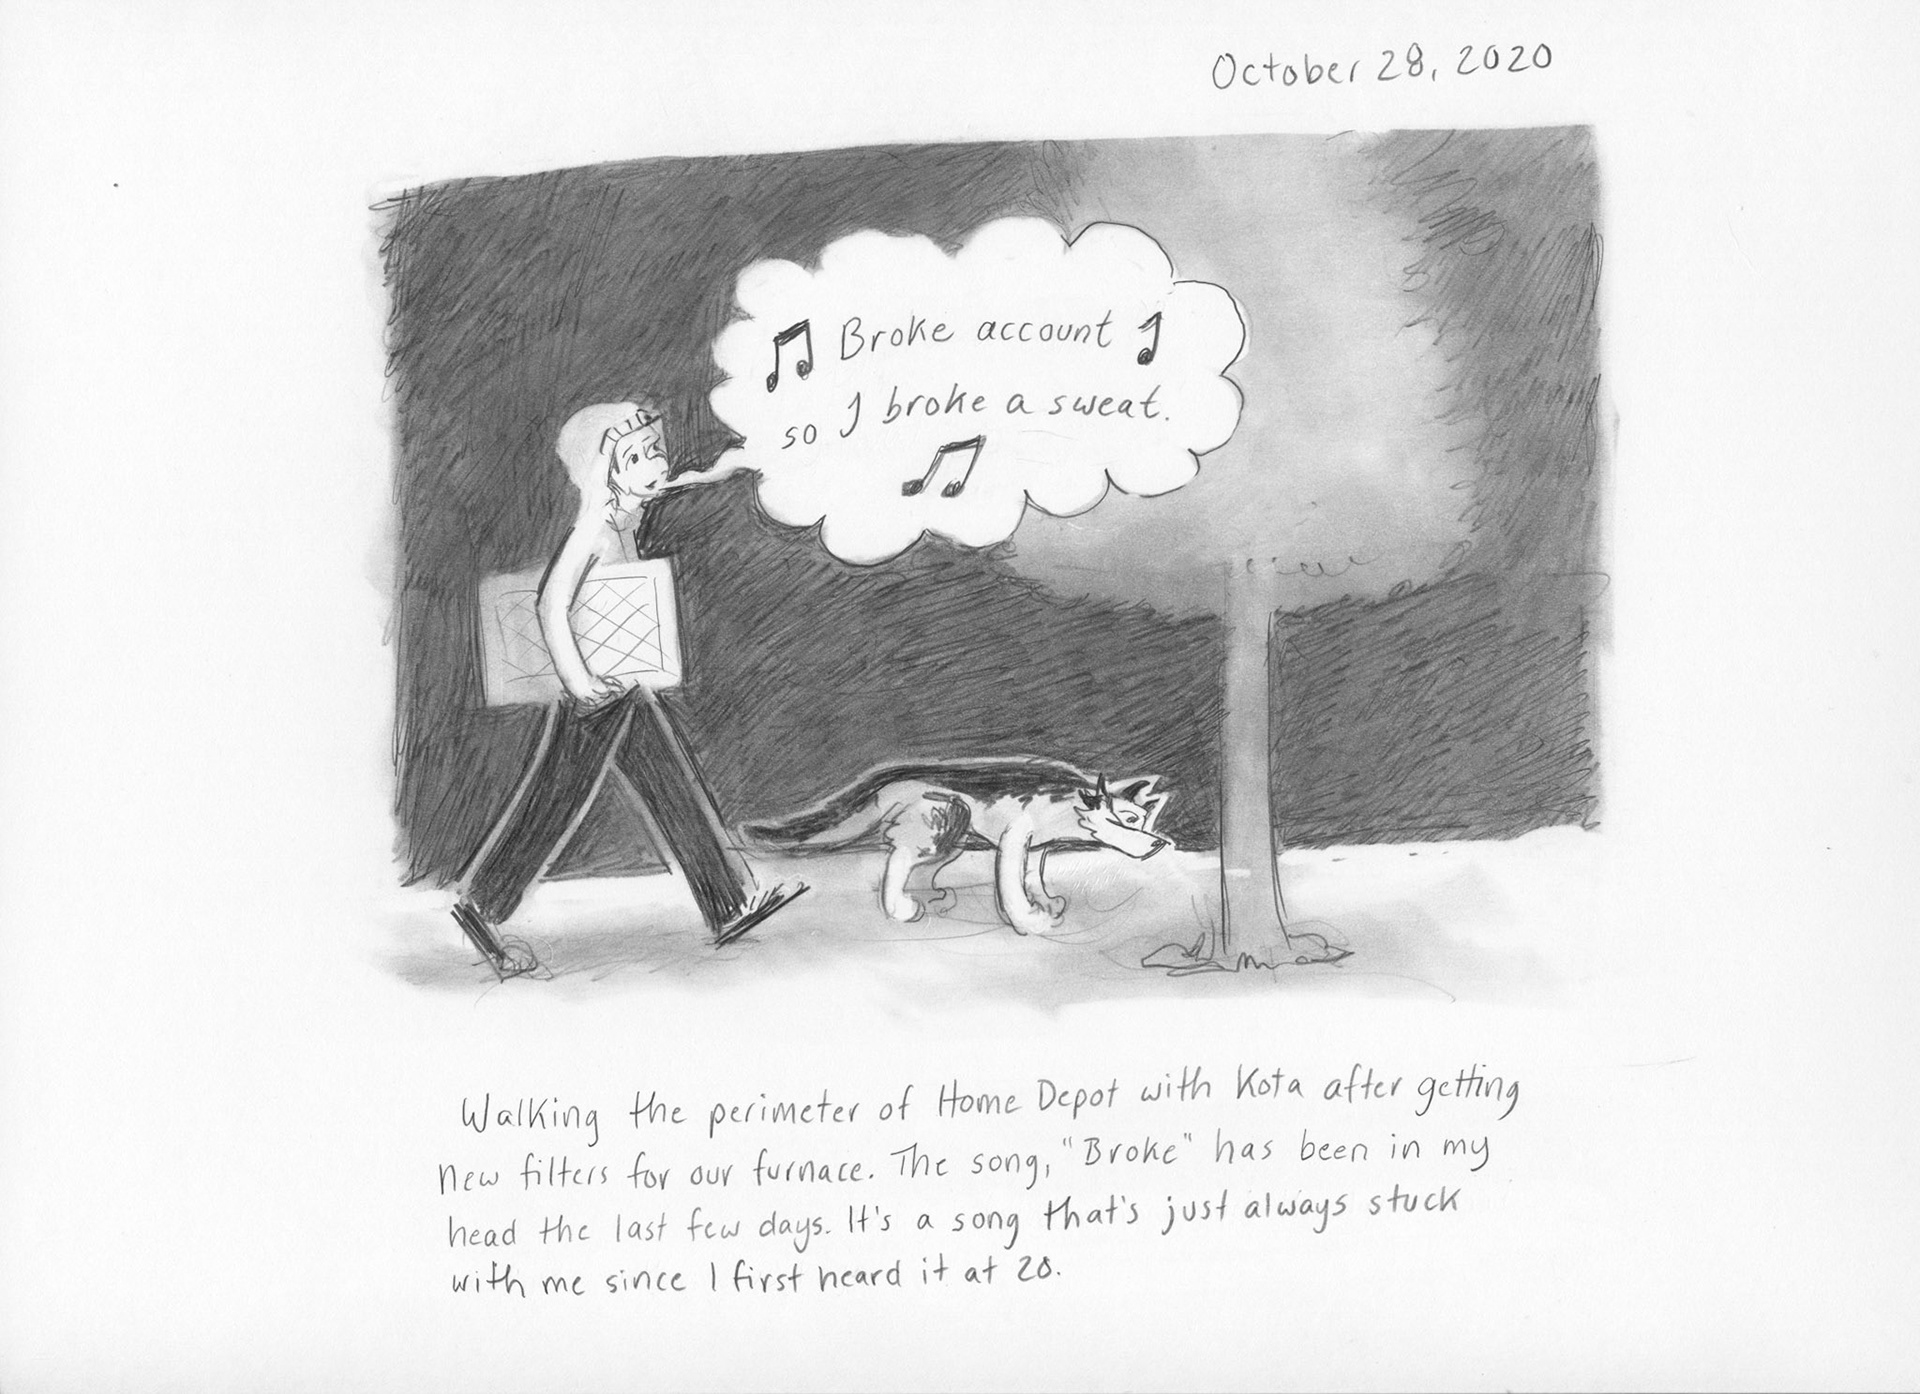 October 28, 2020
Broke account
so I broke a sweat.
Walking the perimeter of Home Depot with Kota after getting
new filters for our furnace. The song, "Broke" has been in my
head the last few days. It's a song that's just always stuck
with me since I first heard it at 20.